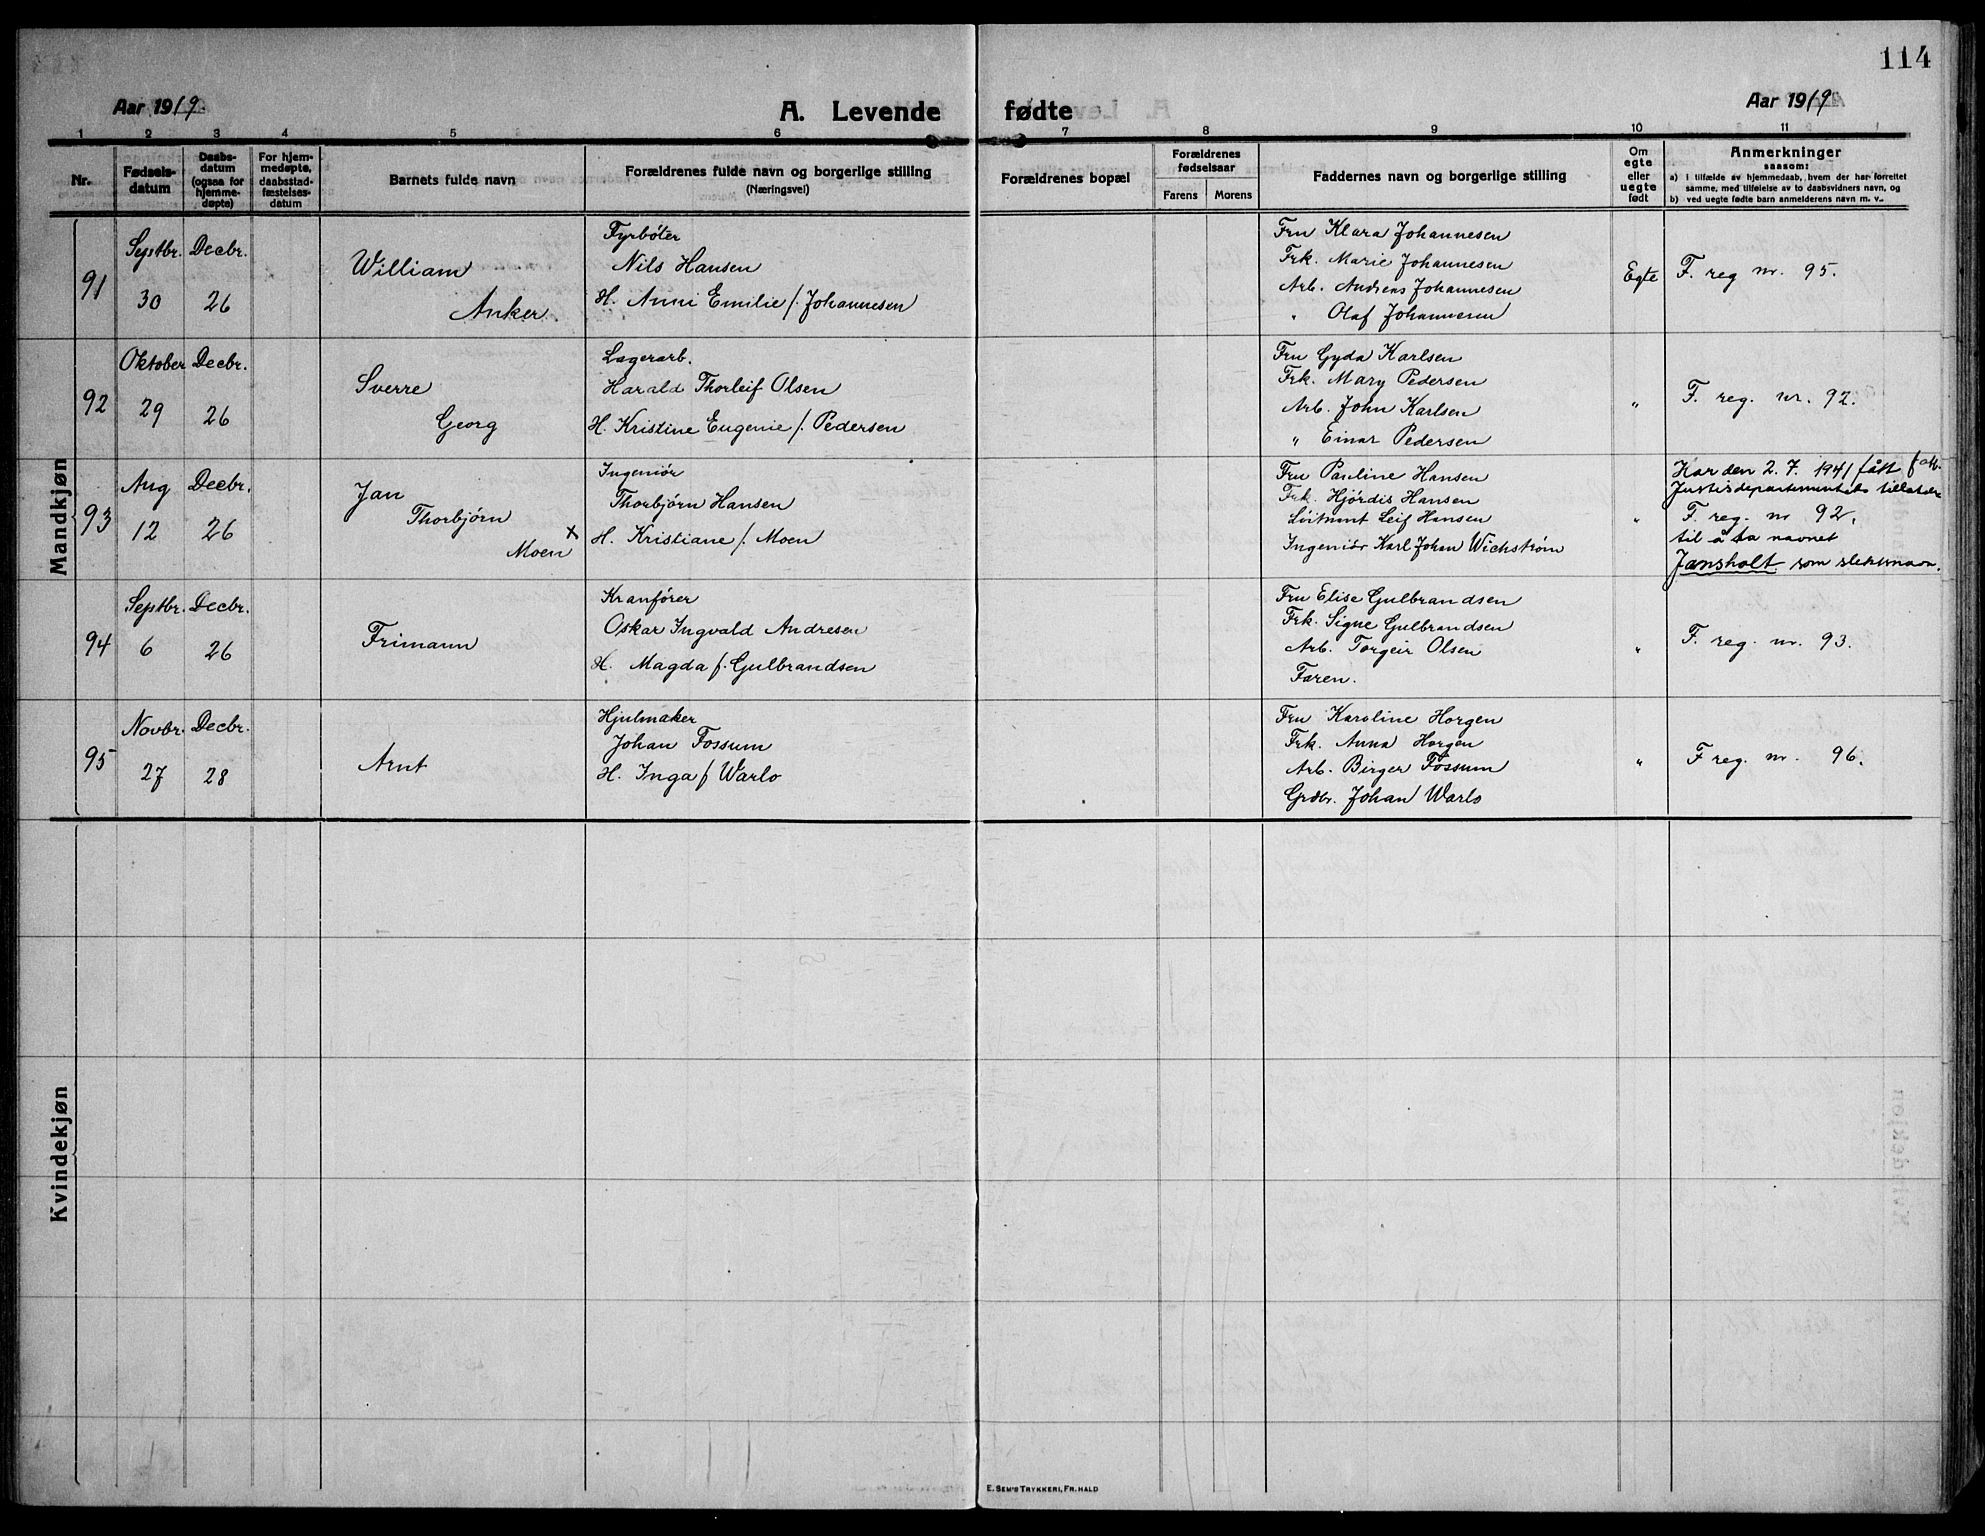 114
Aar 1919.
A. Levende fødte
Aar 1919
1 2 3 4 5 6 7 8 9 10 11
Nr.
Fødsels-
datum
Daabs-
datum
(ogsaa for
hjemme-
døpte)
For hjem-
medøpte,
daabsstad-
fæstelses-
datum
Barnets fulde navn
Forældrenes fulde navn og borgerlige stilling
(Næringsvei)
Forældrenes bopæl
Forældrenes
fødselsaar
Farens Morens
Faddernes navn og borgerlige stilling
Om
egte
eller
uegte
født
Anmerkninger
saasom:
a) i tilfælde av hjemmedaab, hvem der har forrettet
samme, med tilføielse av to daabsvidners navn, og
b) ved uegte fødte barn anmelderens navn m. v..
Mandkjøn
91
Septbr.
30
Decbr.
26
William
Anker
Fyrbøter
Nils Hansen
H. Anni Emilie f. Johannesen
Fru Klara Johannesen
Frk. Marie Johannesen
Arb. Andreas Johannesen
" Olaf Johannesen
Egte
F. reg nr. 95.
92
Oktober
29
Decbr.
26
Sverre
Georg
Lagerarb.
Harald Thorleif Olsen
H. Kristine Eugenie f. Pedersen
Fru Gyda Karlsen
Frk. Mary Pedersen
Arb. John Karlsen
" Einar Pedersen
"
F. reg. nr. 92.
93
Aug
12
Decbr.
26
Jan
Thorbjørn
Moen x
Ingeniør
Thorbjørn Hansen
H. Kristiane f. Moen
Fru Pauline Hansen
Frk. Hjørdis Hansen
Løitnant Leif Hansen
Ingeniør Karl Johan Wichstrøm
"
Har den 2.7. 1941 fått
Justisdepartementets tillatelse
F. reg. nr 92.
til å ta navnet
Jansholt som slektsnavn.
94
Septbr.
6
Decbr.
26
Frimann
Kranfører
Oskar Ingvald Andresen
H. Magda f. Gulbrandsen
Fru Elise Gulbrandsen
Frk. Signe Gulbrandsen
Arb. Torgeir Olsen
Faren.
"
F. reg. nr. 93.
95
Novbr.
27
Decbr.
28
Arnt
Hjulmaker
Johan Fossum
H. Inga f Warlo
Fru Karoline Horgen
Frk. Anna Horgen
Arb. Birger Fossum
Grdbr. Johan Warlo
"
F reg. nr. 96.
Kvindekjøn
E. SEM'S TRYKKERI, FR.HALD